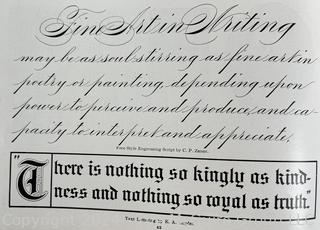 Fine Art in Writing
may be as soul stirring as fine art in
poetry or painting, depending upon
power to perceive and produce, and ca-
pacity to interpret and appreciate.
Free-Style Engrossing Script by C. P. Zaner.
"There is nothing so kingly as kind-
ness and nothing so royal as truth."
Text Lettering by K. A.